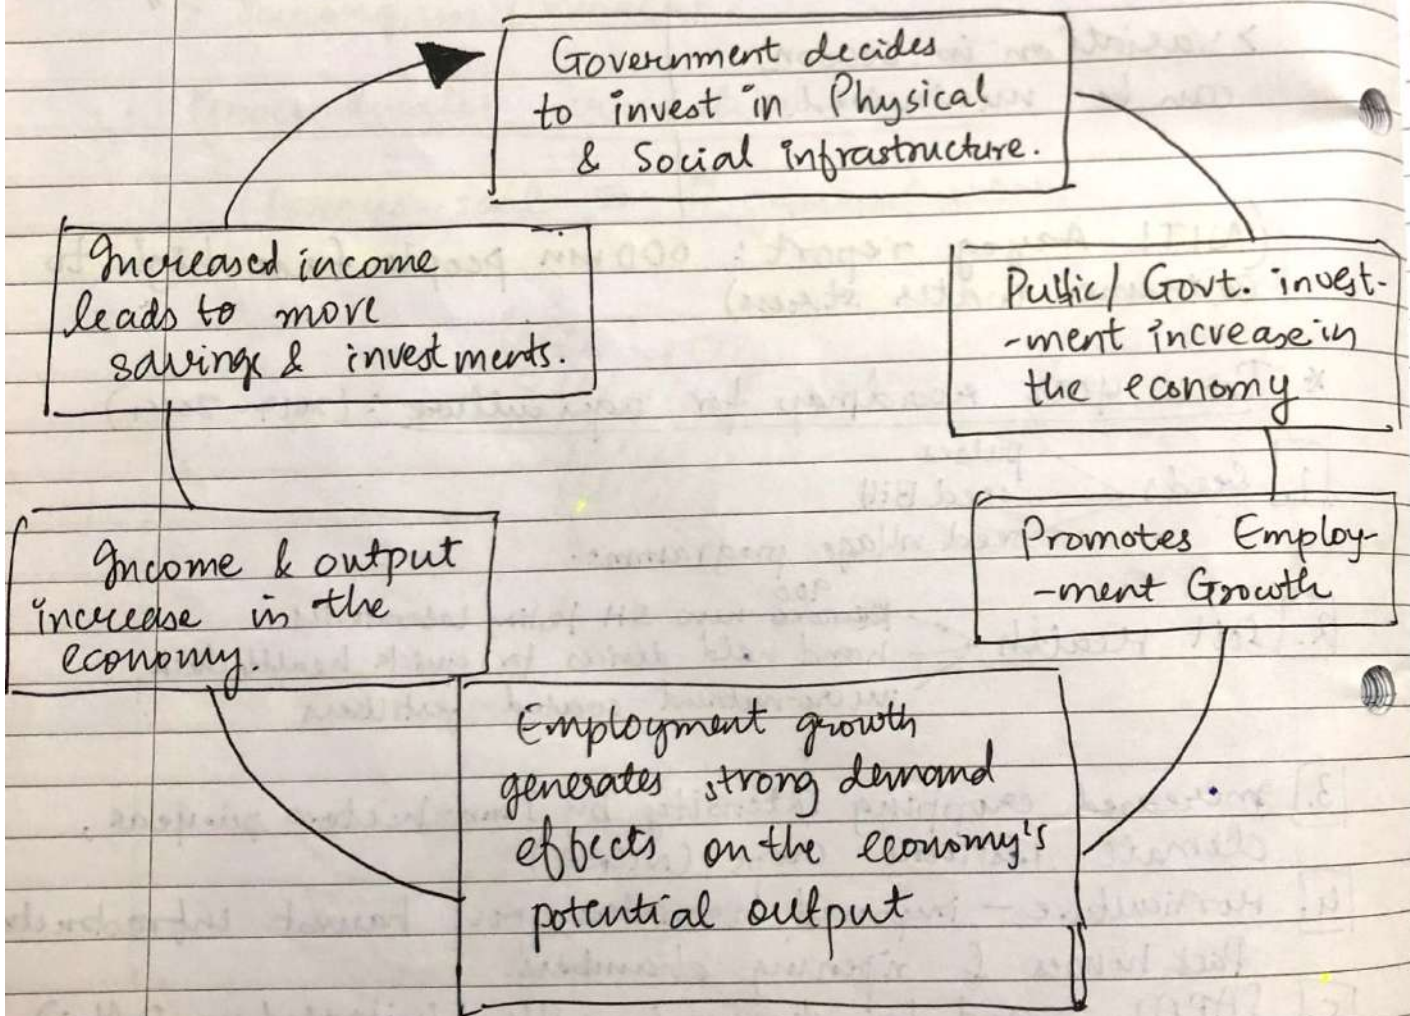 Government decides
to invest in Physical
& Social infrastructure.
Public/Govt. invest-
-ment increase in
the economy
Promotes Employ-
-ment Growth
Employment growth
generates strong demand
effects on the economy's
potential output
Income & output
increase in the
economy.
Increased income
leads to more
savings & investments.